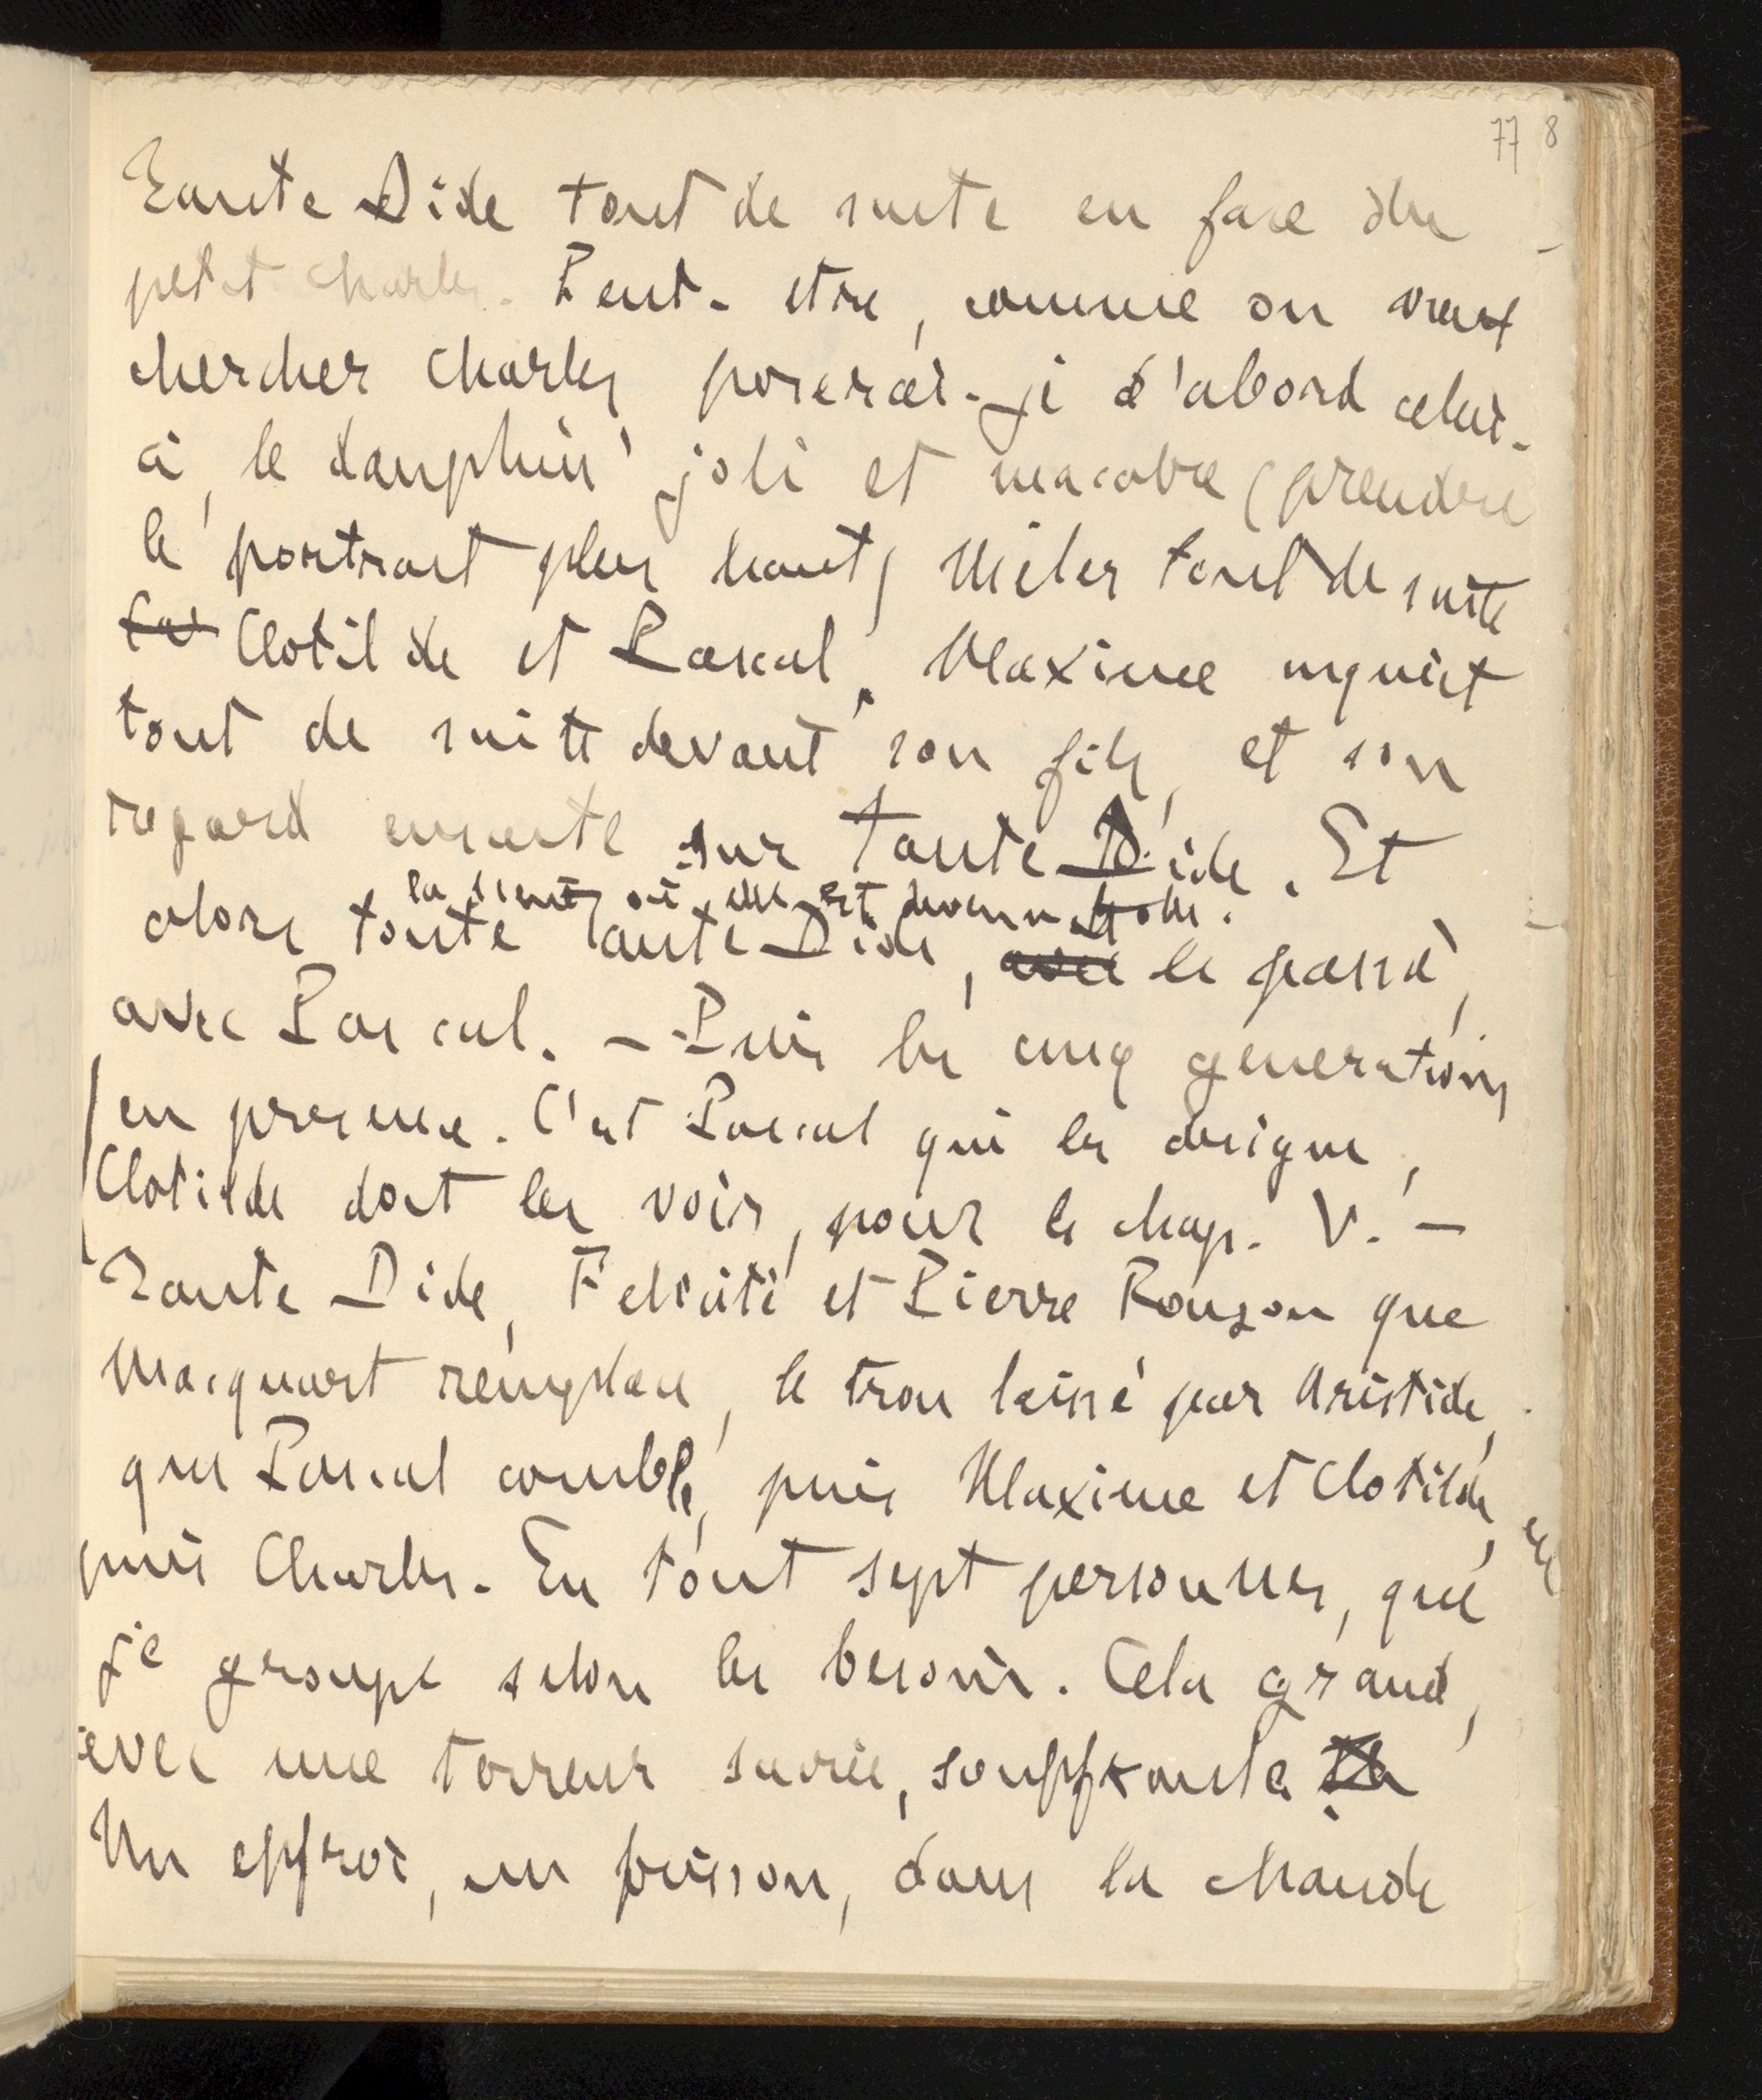 77 8
Tante Dide tout de suite en face du
petit Charles. Peut-etre, comme on vient
chercher Charles, poserai-je d'abord celui-
ci, le dauphin joli et macabre (prendre
le portrait plus haut) Mêler tout de suite
Clotilde et Pascal. Maxime inquiet
tout de suite devant son fils, et son
regard ensuite sur Tante Dide. Et
la scène où elle est devenue folle.
alors toute Tante Dide, avec le passé,
avec Pascal. – Puis les cinq générations
en presence. C'est Pascal qui les designe,
Clotilde doit les voir, pour le chap. V. –
Tante Dide, Félicité et Pierre Rougon que
Macquart remplace, le trou laissé par Aristide,
que Pascal comble, puis Maxime et Clotilde,
puis Charles. En tout sept personnes, que
je groupe selon les besoins. Cela grand,
avec une terreur sacrée, souffrante
Un effroi, un frisson, dans la chaude